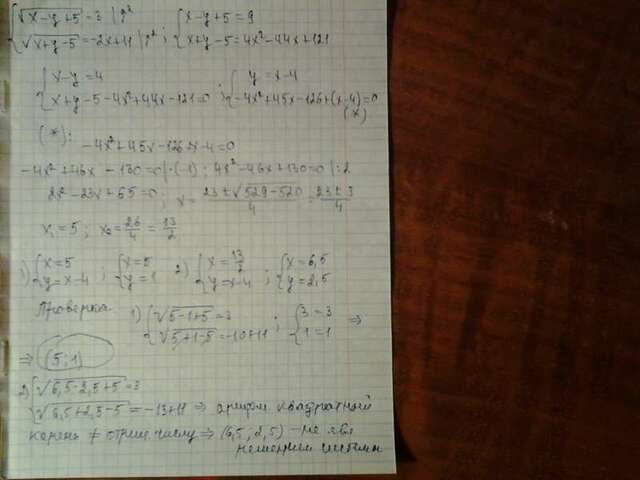 {√(x-y+5) = 3 |^2 ; {x-y+5=9
{√(x+y-5) = -2x+11 |^2 ; {x+y-5=4x²-44x+121
{x-y=4 ; {y=x-4
{x+y-5-4x²+44x-121=0 ; {-4x²+45x-126+(x-4)=0
(*)
(*):
-4x²+45x-126+x-4=0
-4x²+46x-130=0 |·(-1) ; 4x²-46x+130=0 |:2
2x²-23x+65=0 ; x = (23±√(529-520))/4 = (23±3)/4
x₁=5 ; x₂=26/4=13/2
1) {x=5 ; {x=5 2) {x=13/2 ; {x=6,5
{y=x-4 {y=1 {y=x-4 {y=2,5
Проверка
1) {√(5-1+5)=3 ; {3=3 ⇒
{√(5+1-5)=-10+11 {1=1
⇒ (5;1)
2) {√(6,5-2,5+5)=3
{√(6,5+2,5-5)=-13+11 ⇒ арифм. квадратный
корень ≠ отриц. числу ⇒ (6,5; 2,5) - не явл
решением системы